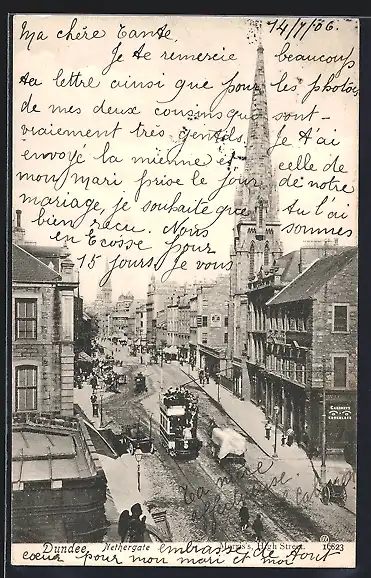 14/7/06.
Ma chère Tante,
Je te remercie beaucoup
ta lettre ainsi que pour les photos
de mes deux cousins que sont
vraiement très gentils. Je t'ai
envoyé la mienne et celle de
mon mari prise le jour de notre
mariage, je souhaite que tu l'ai
bien reçu. Nous sommes
en Ecosse pour
15 jours, je vous
embrasse de tout
cœur pour mon mari et moi
Ta nièce
affectionnée
CADBURY'S
CHOCOLATE
Dundee. Nethergate High Street. 10523